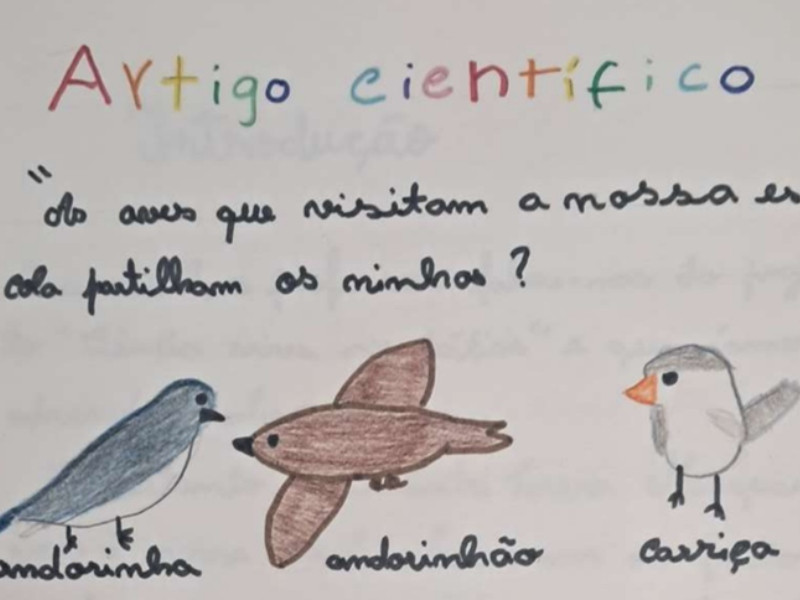 Artigo científico
"As aves que visitam a nossa es
cola partilham os ninhos?
andorinha andorinhão carriça